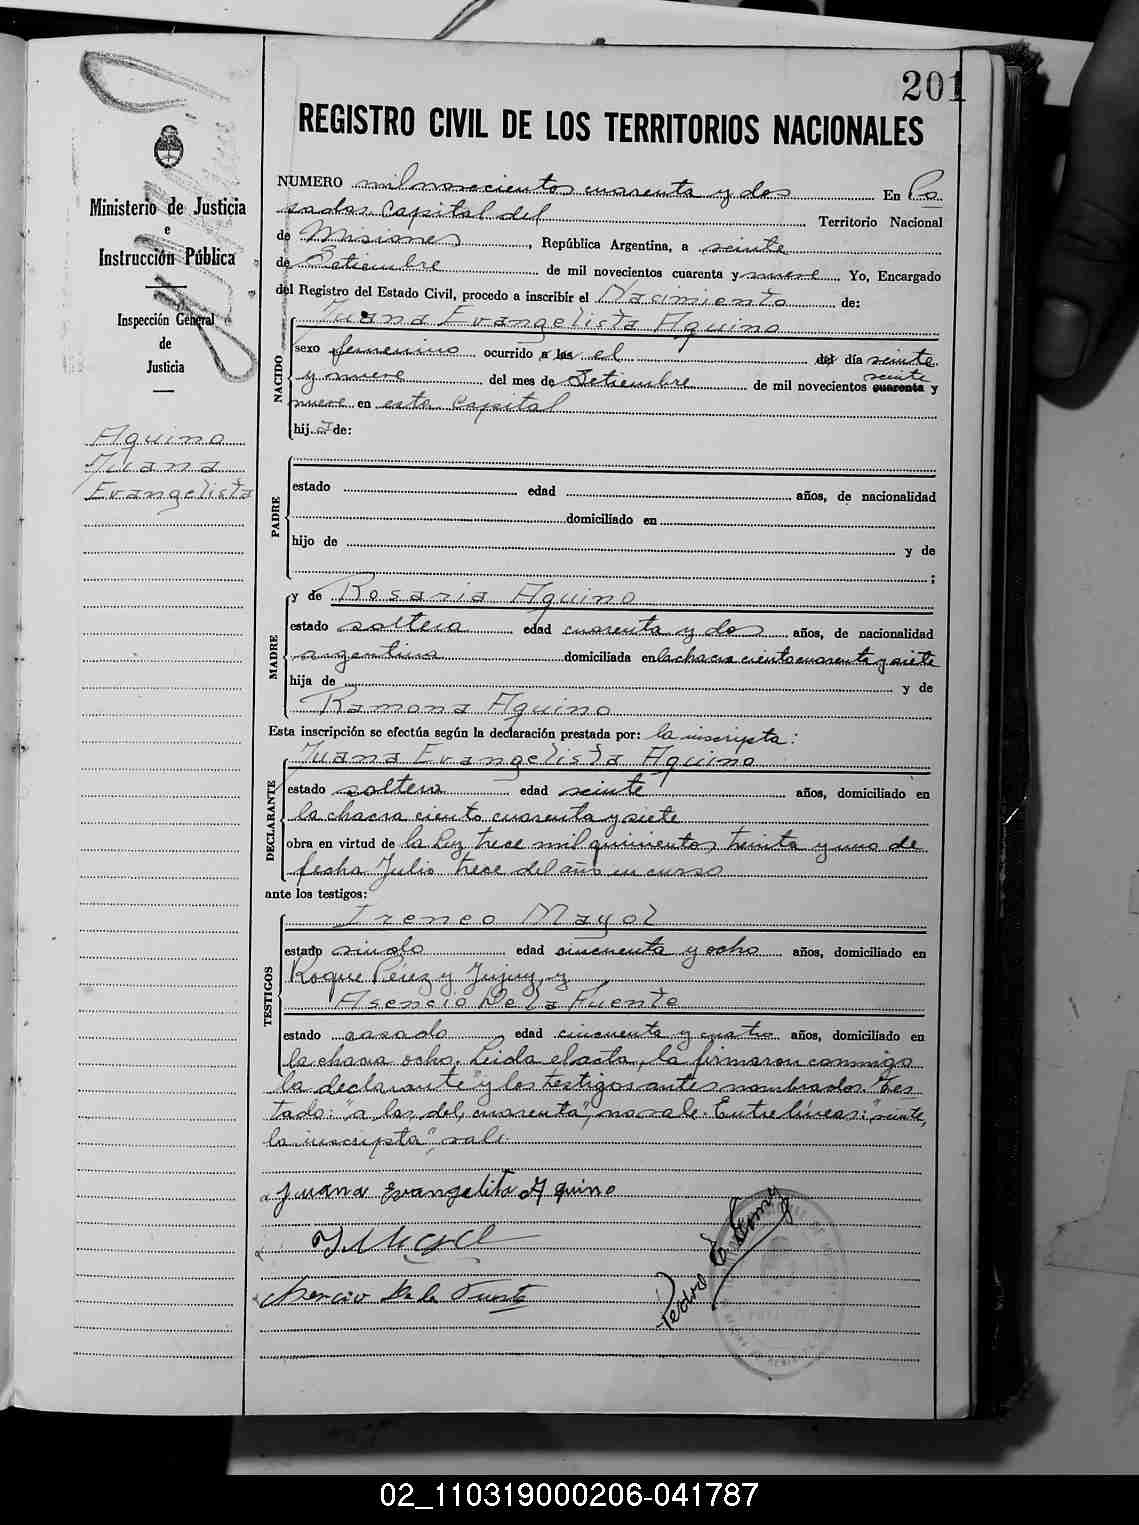 201
REGISTRO CIVIL DE LOS TERRITORIOS NACIONALES
Ministerio de Justicia
e
Instrucción Pública
Inspección General
de
Justicia
Aquino
Juana
Evangelista
NUMERO mil novecientos cuarenta y dos En Po
sadas Capital del Territorio Nacional
de Misiones, República Argentina, a veinte
de Setiembre de mil novecientos cuarenta y nueve Yo, Encargado
del Registro del Estado Civil, procedo a inscribir el Nacimiento de:
Juana Evangelista Aquino
NACIDO
sexo femenino ocurrido a las el del día veinte
y nueve del mes de Setiembre de mil novecientos cuarenta veinte y
nueve en esta Capital
hija de:
PADRE
estado edad años, de nacionalidad
domiciliado en
hijo de y de
;
MADRE
y de Rosaria Aquino
estado soltera edad cuarenta y dos años, de nacionalidad
argentina domiciliada en la chacra ciento cuarenta y siete
hija de y de
Ramona Aquino
Esta inscripción se efectúa según la declaración prestada por: la inscripta:
DECLARANTE
Juana Evangelista Aquino
estado soltera edad veinte años, domiciliado en
la chacra ciento cuarenta y siete
obra en virtud de la Ley trece mil quinientos treinta y uno de
fecha Julio trece del año en curso
ante los testigos:
TESTIGOS
Ireneo Mayol
estado viudo edad cincuenta y ocho años, domiciliado en
Roque Pérez y Jujuy, y
Asencio De la Fuente
estado casado edad cincuenta y cuatro años, domiciliado en
la chacra ocho. Leida el acta, la firmaron conmigo
la declarante y los testigos antes nombrados. Tes
tado: "a las, del, cuarenta", no vale. Entre líneas: "veinte,
la inscripta", vale.
Juana Evangelita Aquino
Asencio De la Fuente
Pedro E.
02_110319000206-041787